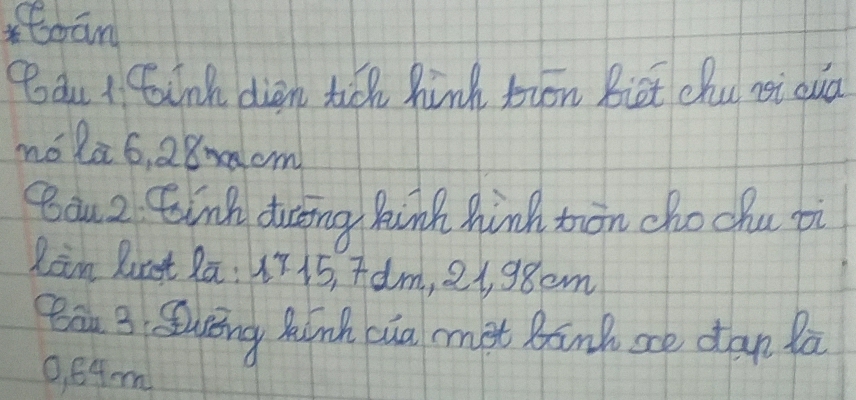 *Toán
Câu 1. Tính diện tích hình tròn biết chu vi của
nó là 6,28 cm
Câu 2. Tính đường kính hình tròn cho chu vi
lần lượt là: 15,7dm, 21,98cm
Câu 3. Đường kính của một bánh xe đạp là
0,64m